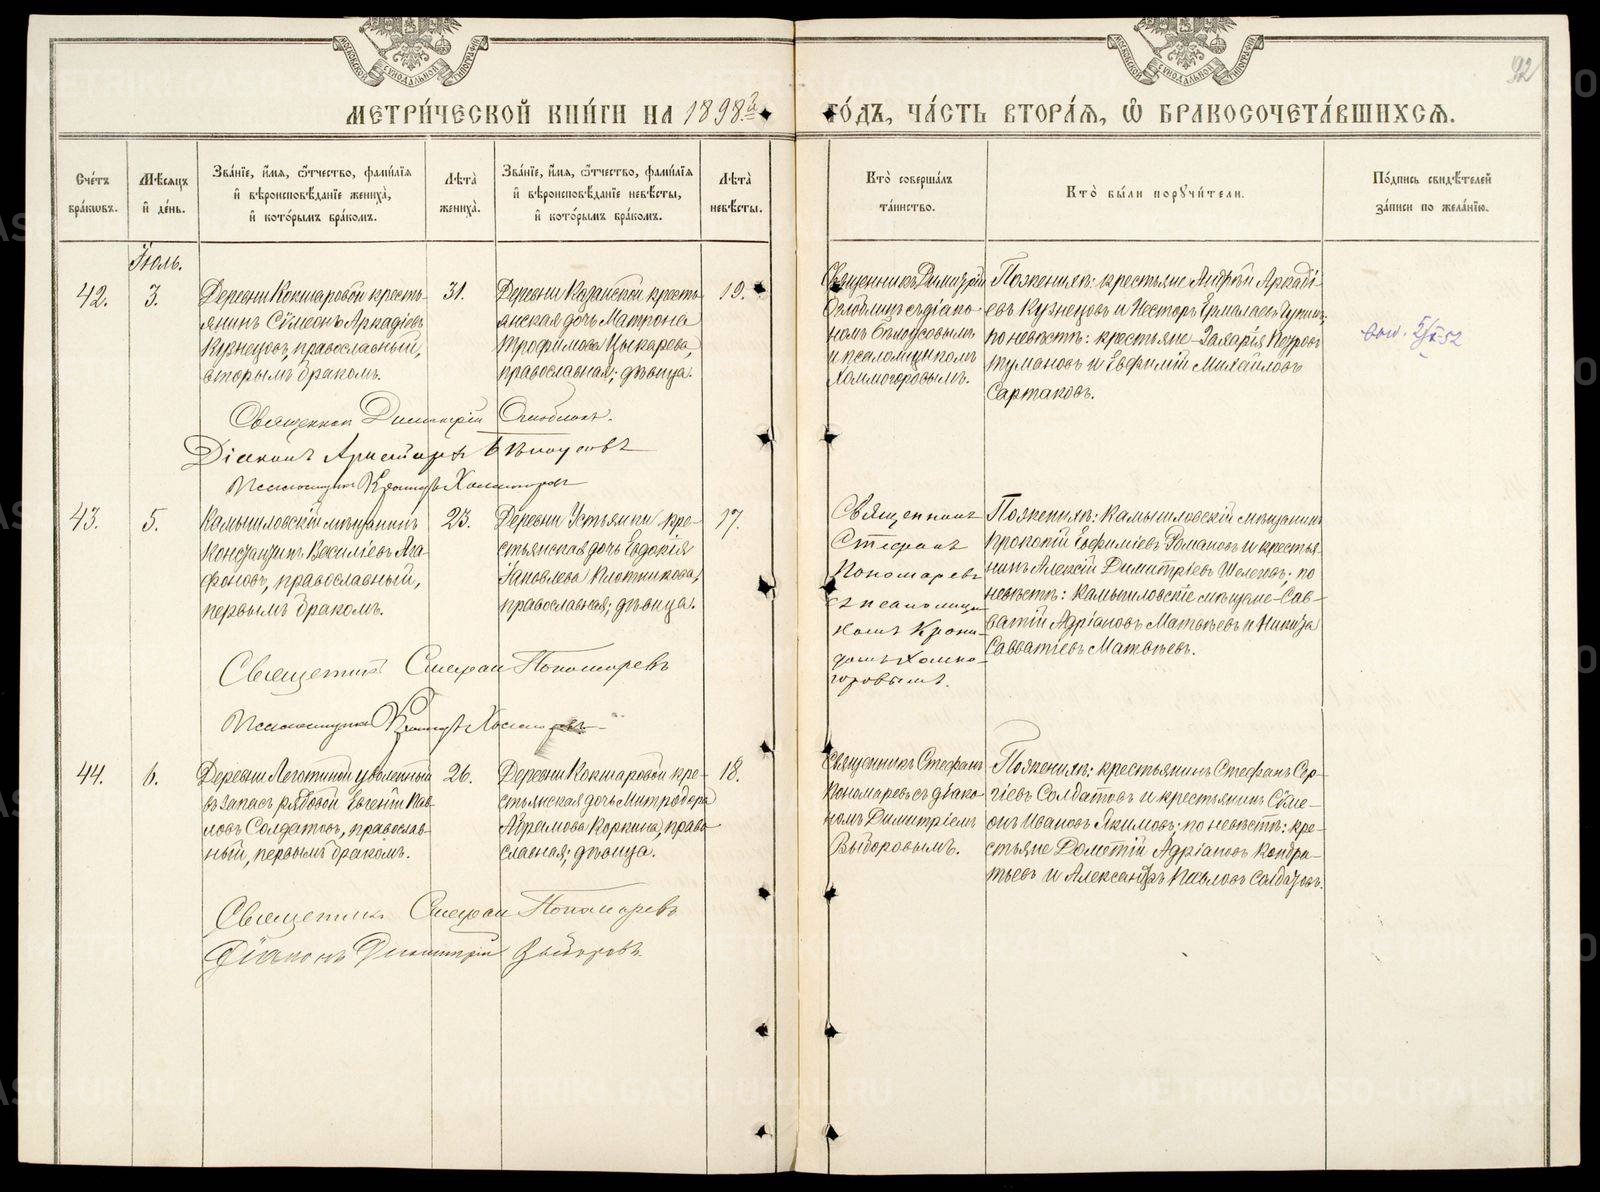 92
МЕТРИ́ЧЕСКОЙ КНИ́ГИ НА 1898й ГО́ДЪ, ЧА́СТЬ ВТОРА́Я, Ѽ БРАКОСОЧЕТА́ВШИХСЯ.
Сче́тъ бра́ковъ.
Мѣ́сяцъ и҆ де́нь.
Зва́нїе, и҆́мя, ѻ҆́тчество, фами́лїя и҆ вѣроисповѣ́данїе жениха̀, и҆ кото́рымъ бра́комъ.
Лѣта̀ жениха̀.
Зва́нїе, и҆́мя, ѻ҆́тчество, фами́лїя и҆ вѣроисповѣ́данїе невѣ́сты, и҆ кото́рымъ бра́комъ.
Лѣта̀ невѣ́сты.
Кто̀ соверша́лъ та́инство.
Кто̀ бы́ли поручи́тели.
По́дпись свидѣ́телей за́писи по жела́нїю.
Іюль.
42.
3.
Деревни Кокшаровой кресть-
янинъ Сѵмеонъ Аркадіевъ
Кузнецовъ, православный,
вторымъ бракомъ.
31.
Деревни Казанской кресть-
янская дочь Матрона
Трофимова Цыкарева,
православная; дѣвица.
19.
Священникъ Димитрій
съ діако-
номъ Бѣлоусовымъ
и псаломщикомъ
Холмогоровымъ.
По женихѣ: крестьяне Андрей Аркаді-
евъ Кузнецовъ и Несторъ Ермолаевъ
по невѣстѣ: крестьяне Захарія Петровъ
Тумановъ и Евфимій Михайловъ
Сартаковъ.
Священникъ Димитрій
Діаконъ Аристархъ Бѣлоусовъ
Псаломщикъ Кронидъ Холмогоровъ
43.
5.
Камышловскій мѣщанинъ
Константинъ Василіевъ Ага-
фоновъ, православный,
первымъ бракомъ.
23.
Деревни Устьянки кре-
стьянская дочь Евдокія
Іаковлева Плотникова,
православная; дѣвица.
17.
Священникъ
Стефанъ
Пономаревъ
съ псаломщи-
комъ Крони-
домъ Холмо-
горовымъ.
По женихѣ: Камышловскій мѣщанинъ
Прокопій Евфиміевъ Романовъ и крестья-
нинъ Алексій Димитріевъ Шелеговъ; по
невѣстѣ: Камышловскіе мѣщане – Сав-
ватій Адріановъ Матвѣевъ и Никита
Савватіевъ Матвѣевъ.
Священникъ Стефанъ Пономаревъ
Псаломщикъ Кронидъ Холмогоровъ
44.
6.
Деревни Леготиной уволенный
въ запасъ рядовой Евгеній Пав-
ловъ Солдатовъ, православ-
ный, первымъ бракомъ.
26.
Деревни Кокшаровой кре-
стьянская дочь Митродора
Абрамова Коркина, право-
славная; дѣвица.
18.
Священникъ Стефанъ
Пономаревъ съ діако-
номъ Димитріемъ
Выборовымъ.
По женихѣ: крестьянинъ Стефанъ Сер-
гіевъ Солдатовъ и крестьянинъ Сѵме-
онъ Ивановъ Якимовъ; по невѣстѣ: кре-
стьяне Дометій Адріановъ Кондра-
тьевъ и Александръ Павловъ Солдатовъ.
Священникъ Стефанъ Пономаревъ
Діаконъ Димитрій Выборовъ
METRIKI.GASO-URAL.RU